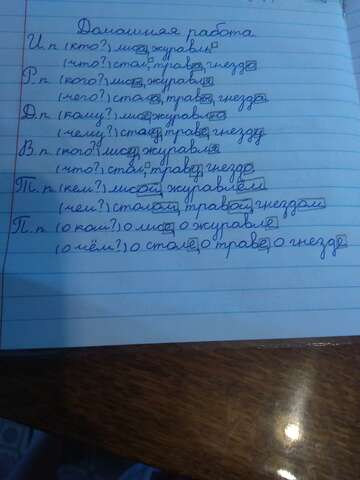 Домашняя работа
И.п (кто?) лиса, журавль
(что?) стол, трава, гнездо
Р.п (кого?) лисы, журавля
(чего?) стола, травы, гнезда
Д.п (кому?) лисе, журавлю
(чему?) столу, траве, гнезду
В.п (кого?) лису, журавля
(что?) стол, траву, гнездо
Т.п (кем?) лисой, журавлём
(чем?) столом, травой, гнездом
П.п (о ком?) о лисе, о журавле
(о чём?) о столе, о траве, о гнезде